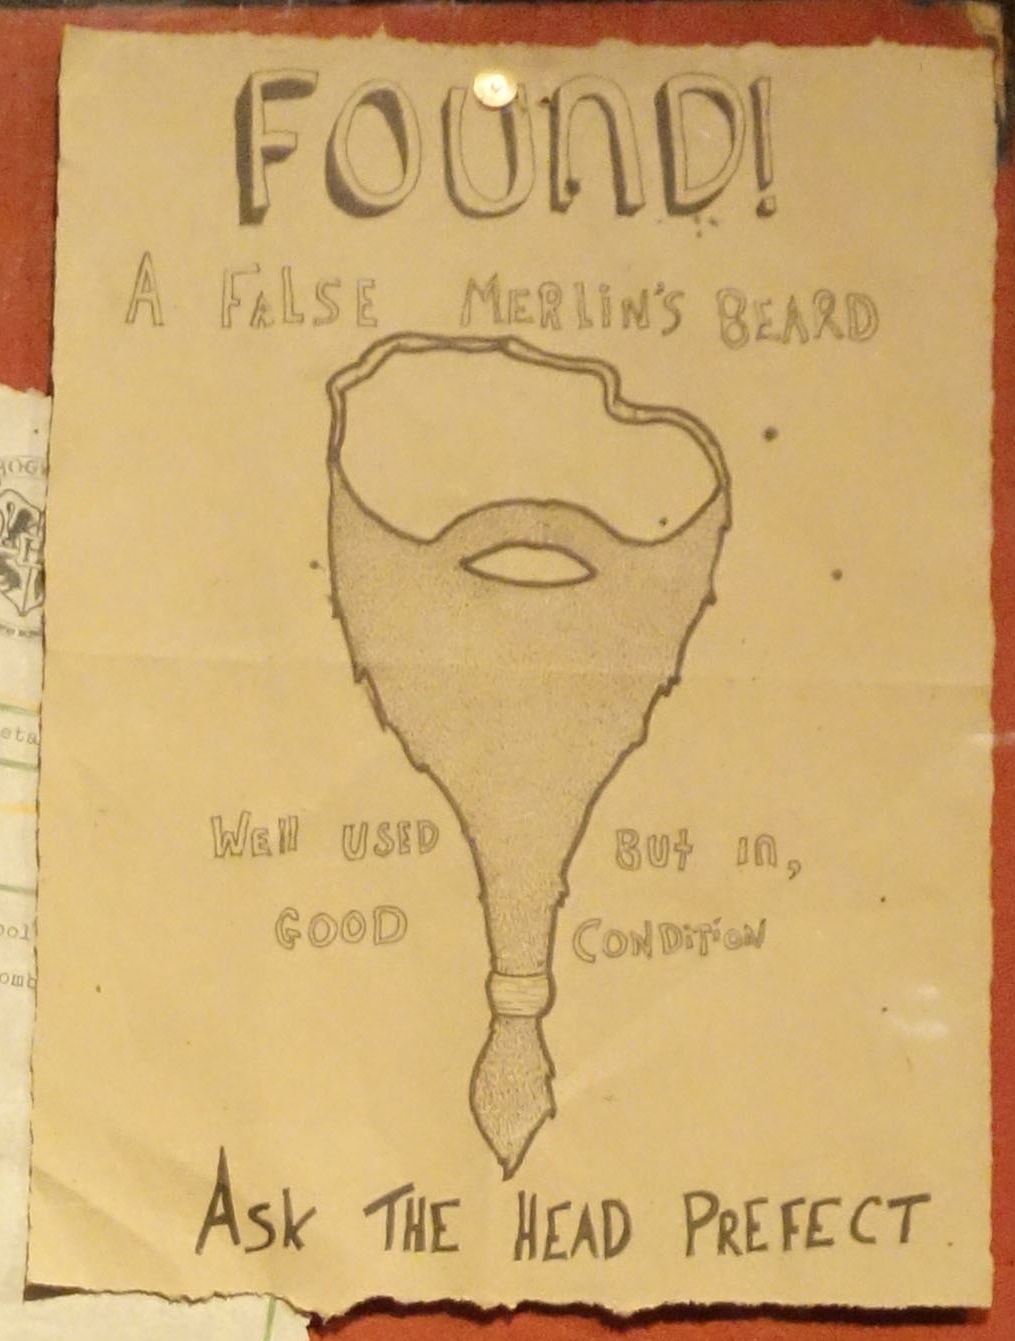 FOUnD!
A FALSE MERLiN'S BEARD
WEll USED But in,
GOOD CONDiTiON
ASk THE HEAD PREFECT.
eta
ool
omb